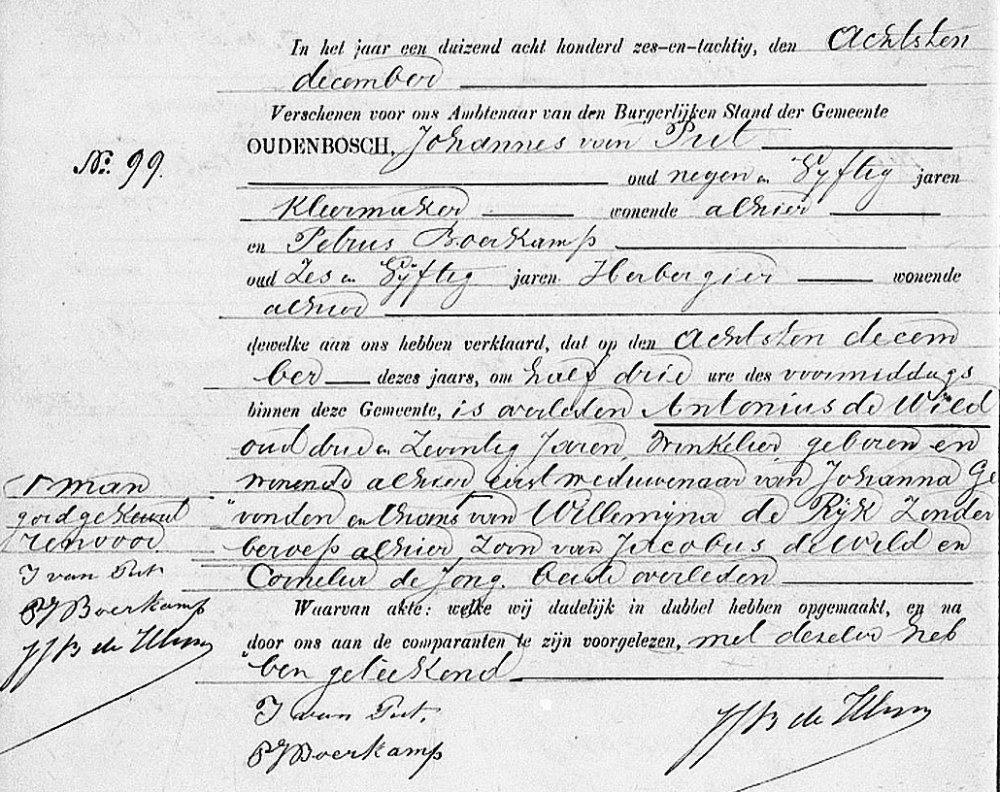 In het jaar een duizend acht honderd zes-en-tachtig, den Achtsten
december
Verschenen voor ons Ambtenaar van den Burgerlijken Stand der Gemeente
OUDENBOSCH, Johannes van Put
No. 99.
oud negen en Vyftig jaren
Kleermaker wonende alhier
en Petrus Boerkamp
oud Zes en Vyftig jaren Herbergier wonende
alhier
dewelke aan ons hebben verklaard, dat op den Achtsten decem
ber dezes jaars, om half drie ure des voormiddags
binnen deze Gemeente, is overleden Antonius de Wild
oud drie en Zeventig Jaren, Winkelier geboren en
wonende alhier eerst weduwenaar van Johanna Ge
vonden en thans van Willemijna de Rijk Zonder
beroep alhier, Zoon van Jacobus de Wild en
Cornelia de Jong, beide overleden
Waarvan akte: welke wij dadelijk in dubbel hebben opgemaakt, en na
door ons aan de comparanten te zijn voorgelezen, met dezelve heb
ben geteekend
J van Put.
PJ Boerkamp
man
goedgekeurd
renvooi.
J van Put.
PJ Boerkamp